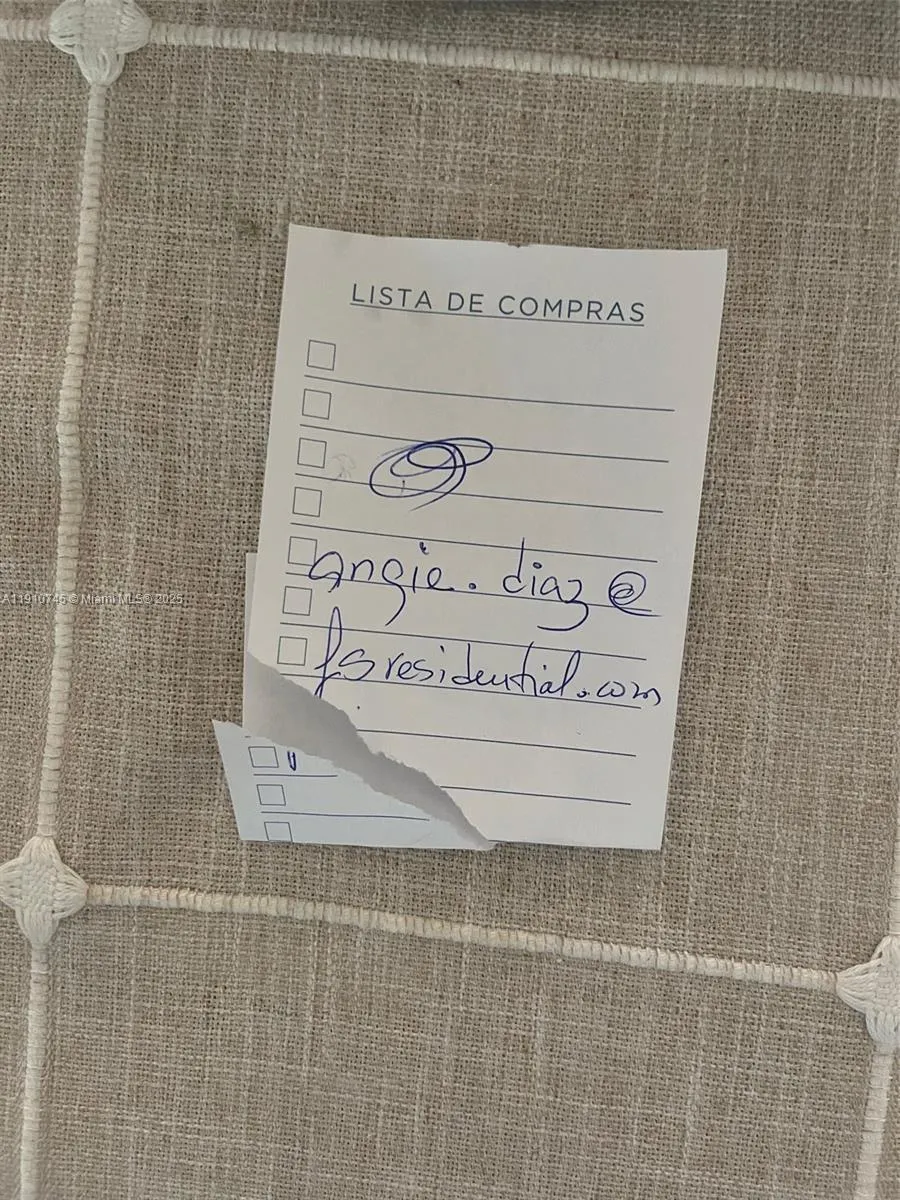 LISTA DE COMPRAS
angie.diaz@
fsresidential.com
A11910746 © Miami MLS© 2025